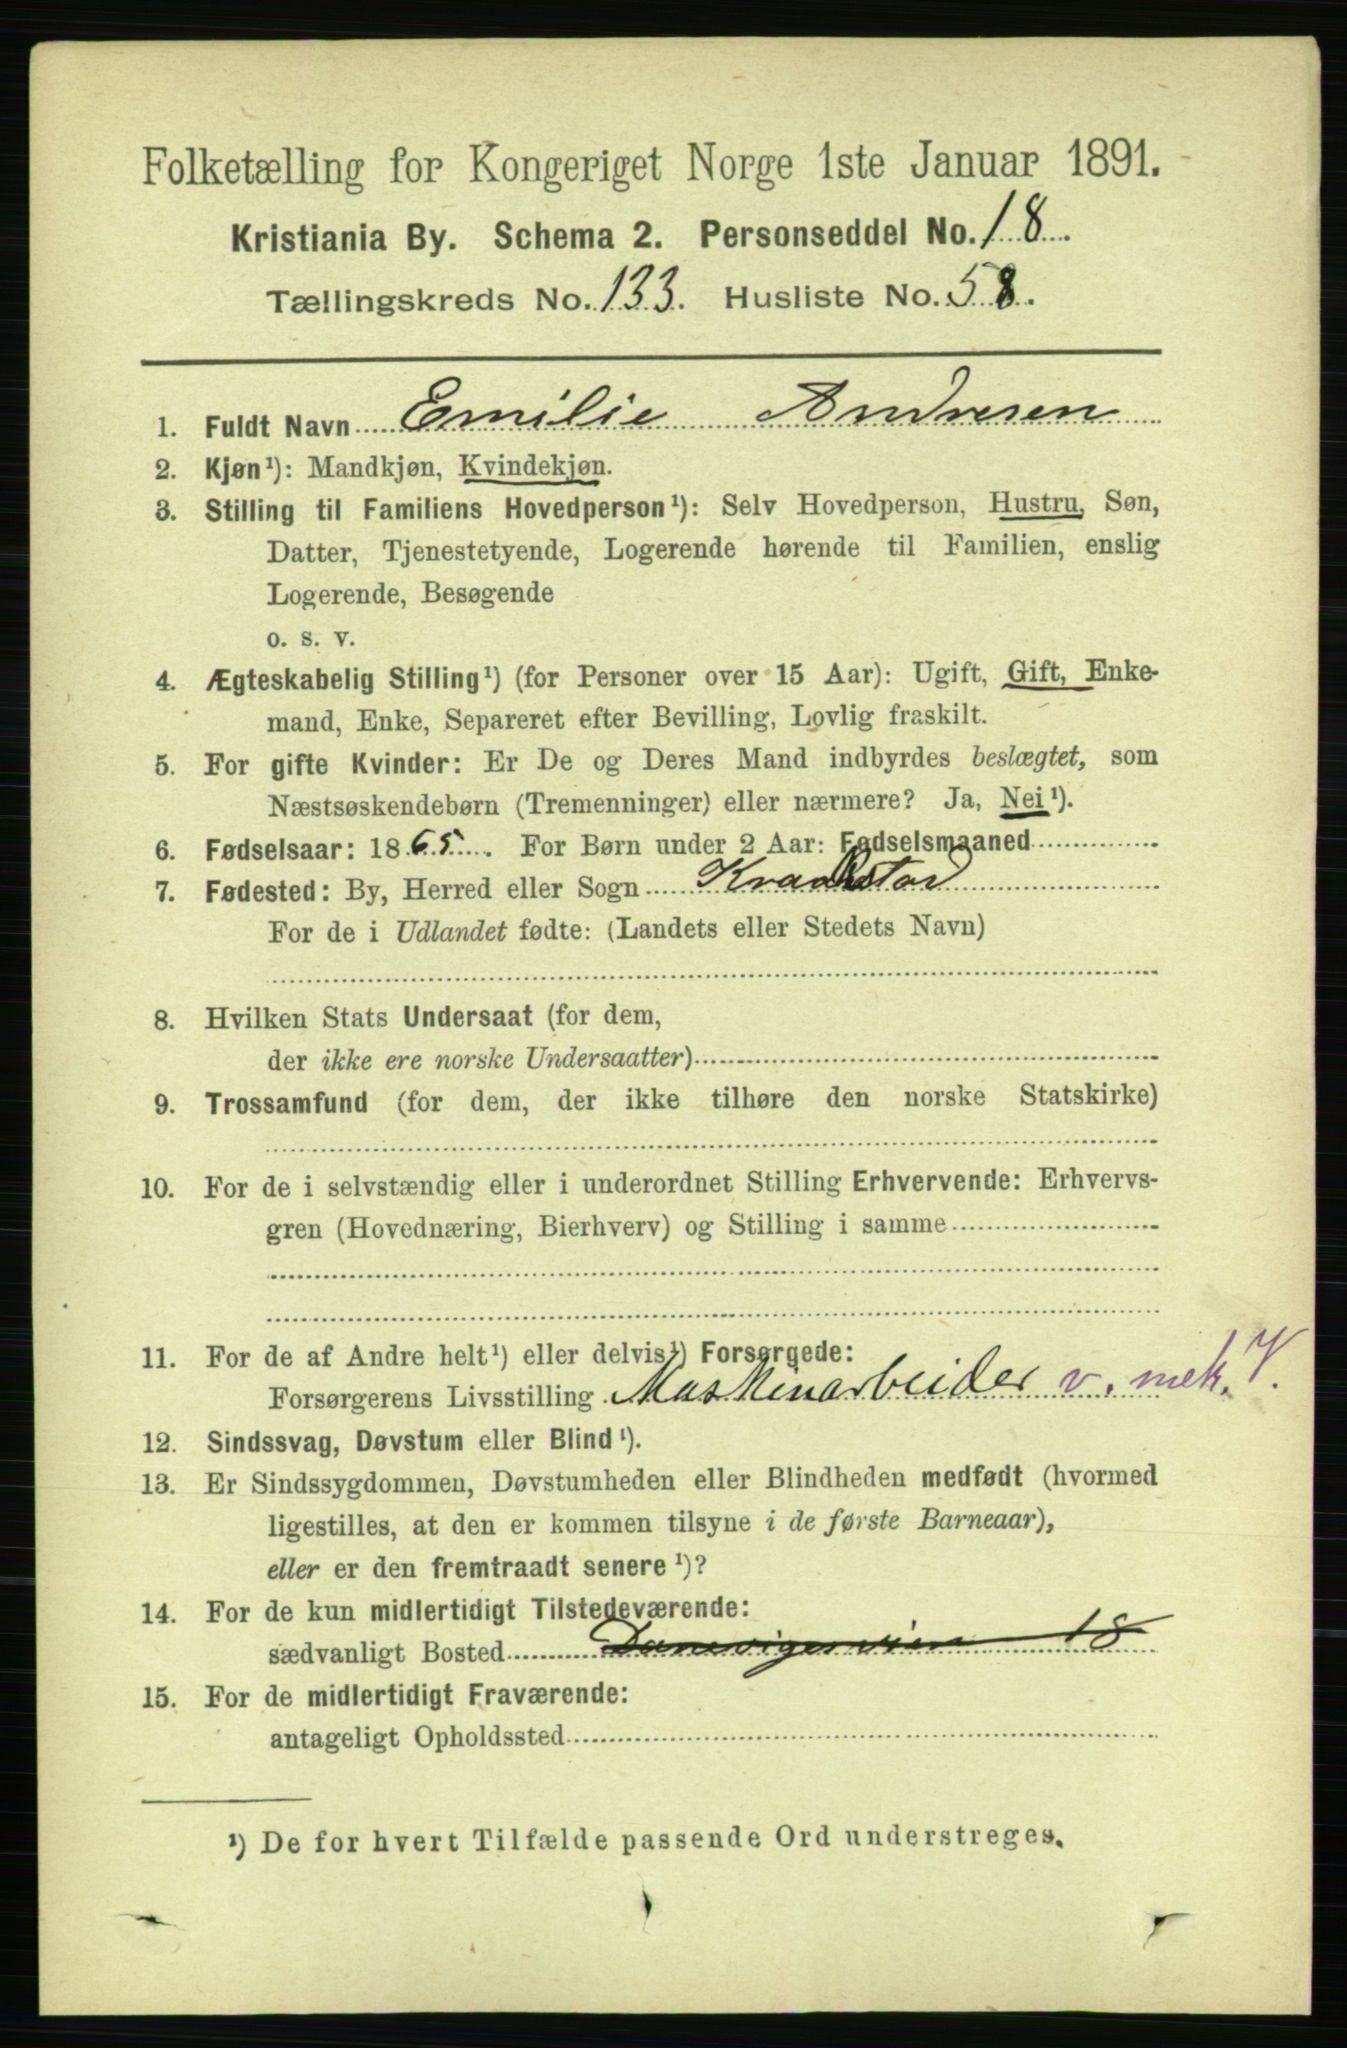 Folketælling for Kongeriget Norge 1ste Januar 1891.
Kristiania By. Schema 2. Personseddel No. 18.
Tællingskreds No. 133. Husliste No. 58.
1. Fuldt Navn Emilie Andresen
2. Kjøn¹): Mandkjøn, Kvindekjøn.
3. Stilling til Familiens Hovedperson¹): Selv Hovedperson, Hustru, Søn,
Datter, Tjenestetyende, Logerende hørende til Familien, enslig
Logerende, Besøgende
o. s. v.
4. Ægteskabelig Stilling¹) (for Personer over 15 Aar): Ugift, Gift, Enke-
mand, Enke, Separeret efter Bevilling, Lovlig fraskilt.
5. For gifte Kvinder: Er De og Deres Mand indbyrdes beslægtet, som
Næstsøskendebørn (Tremenninger) eller nærmere? Ja, Nei¹).
6. Fødselsaar: 1865. For Børn under 2 Aar: Fødselsmaaned
7. Fødested: By, Herred eller Sogn Kraakstad
For de i Udlandet fødte: (Landets eller Stedets Navn)
8. Hvilken Stats Undersaat (for dem,
der ikke ere norske Undersaatter)
9. Trossamfund (for dem, der ikke tilhøre den norske Statskirke)
10. For de i selvstændig eller i underordnet Stilling Erhvervende: Erhvervs-
gren (Hovednæring, Bierhverv) og Stilling i samme
11. For de af Andre helt¹) eller delvis¹) Forsørgede:
Forsørgerens Livsstilling Maskinarbeider v. mek. V.
12. Sindssvag, Døvstum eller Blind¹).
13. Er Sindssygdommen, Døvstumheden eller Blindheden medfødt (hvormed
ligestilles, at den er kommen tilsyne i de første Barneaar),
eller er den fremtraadt senere¹)?
14. For de kun midlertidigt Tilstedeværende:
sædvanligt Bosted 18
15. For de midlertidigt Fraværende:
antageligt Opholdssted
¹) De for hvert Tilfælde passende Ord understreges.